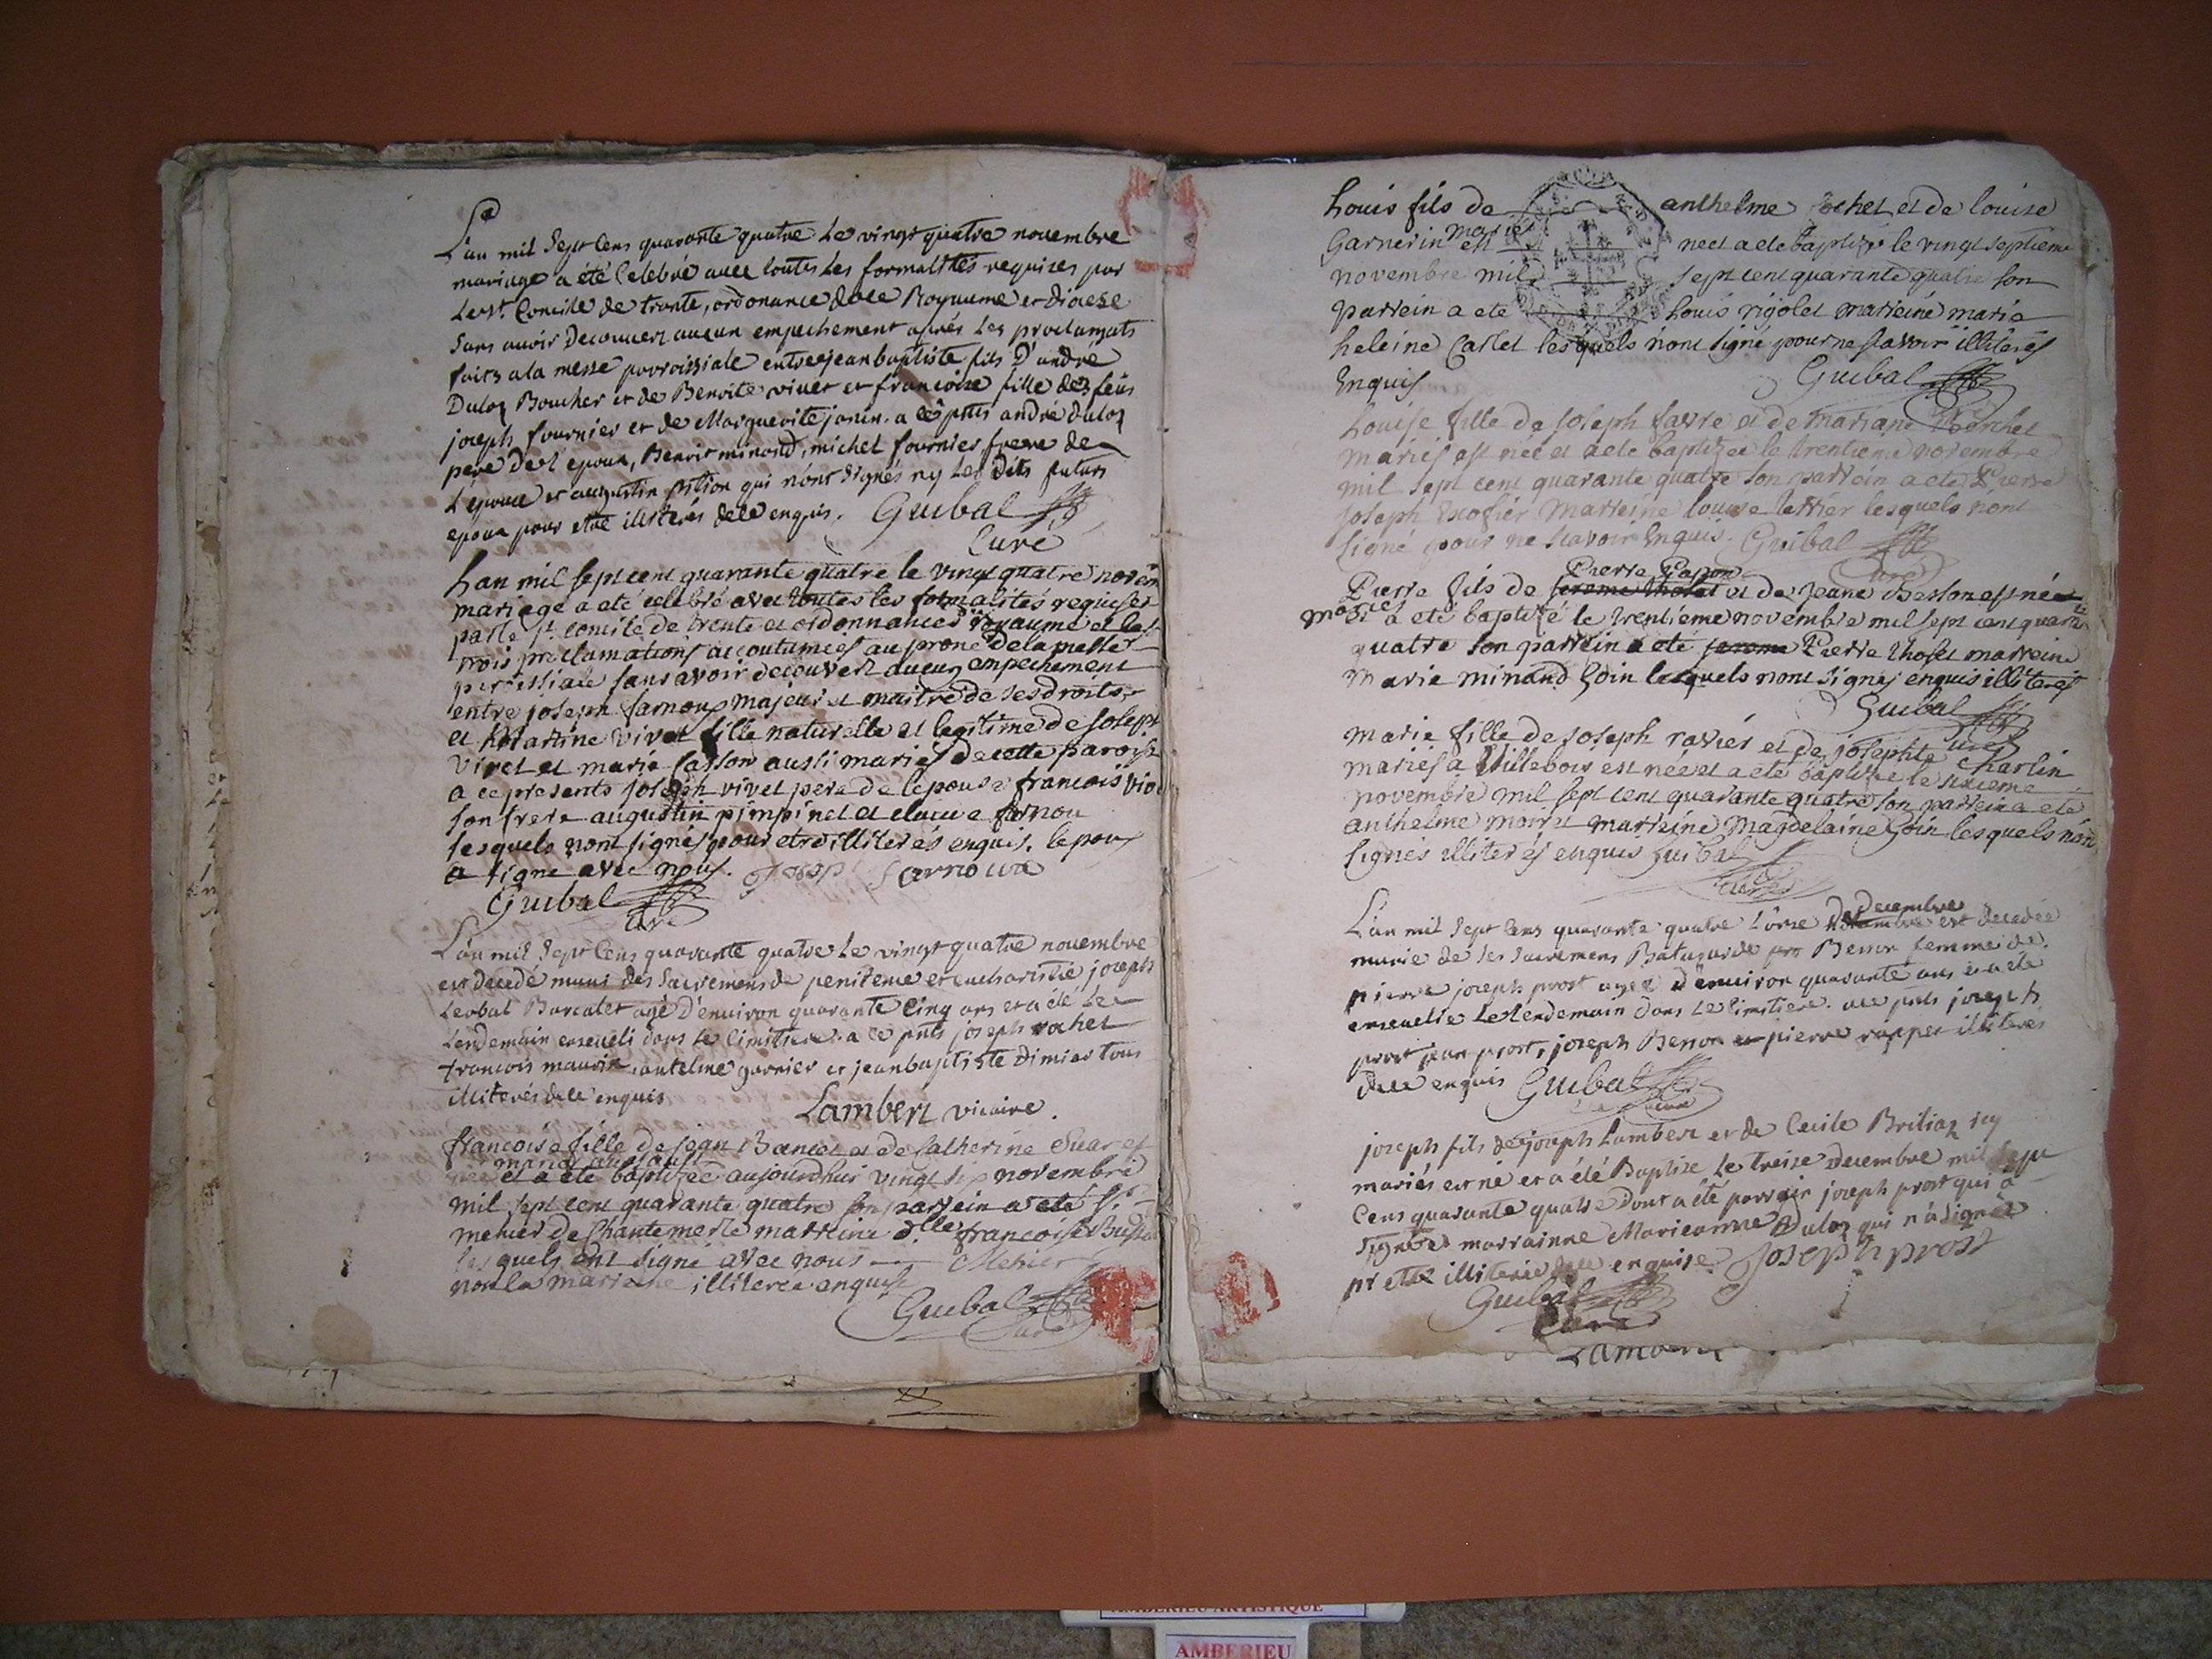 L'an mil Sept Cens quarante quatre Le vingt quatre novembre
mariage a été Celebré avec toutes Les formalités requises par
Le st. Concile de trente, ordonance dece Royaume et diocese
sans avoir Decouvert aucun empechement après Les proclamats
faits a la messe parroissiale entre jean baptiste fils D'andré
Duloz Boucher et de Benoite vivet et françoise fille des feus
joseph fournier et de Marguerite janin. a ce pnts andré duloz
pere de L'epoux, Benoit minand, michel fournier frere de
L'epouse et augustin qui n'ont signés ny Les dits futurs
epoux pour etre illiterés dele enquis. Guibal
Curé
Lan mil sept cent quarante quatre le vingt quatre novem
mariage a eté celebré avec toutes les formalités requises
par le st. concile de trente et ordonnances royaume et les
trois proclamations accoutumées au prone de la messe
paroissiale sans avoir decouvert aucun empechement
entre joseph farnoux majeur et maitre de ses droits
et Martine vivet fille naturelle et legitime de joseph
vivet et marie Casson aussi mariés de cette paroisse
a ce presents joseph vivet pere de lepouse francois vivet
son frere augustin pimpinet et farnou
lesquels nont signés pour etre illiterés enquis. lepoux
a signé avec nous. Josep farnoux
Guibal
Curé
L'an mil Sept Cens quarante quatre Le vingt quatre novembre
est decedé muni des Sacremens de penitence et eucharistie joseph
Leobal Barcalet agé D'environ quarante Cinq ans et a été Le
Lendemain enseveli dans Le Cimitiere. a ce pnts joseph rochet
francois maurin, antelme garnier et jean baptiste dimier tous
illiterés dele enquis
Lambert vicaire.
francoise fille de jean Bancel et de Catherine Suaref
mariés
née et a eté baptizée aujourdhui vingt six novembre
mil sept cent quarante quatre son parrein a eté Sr.
mehier de Chantemerle marreine dlle francoise
lesquels ont signé avec nous Mehier
non la marreine illiteree enquise
Guibal
Curé
Louis fils de anthelme rochet et de louise
Garnerin mariés est née et a eté baptizé le vingt septieme
novembre mil sept cent quarante quatre son
parrein a ete Louis rigolet marreine marie
heleine Carlet lesquels n'ont signé pour ne scavoir illiterés
enquis Guibal
Curé
Louise fille de joseph favre et de mariane
mariés est née et a ete baptizee le trentieme novembre
mil sept cent quarante quatre son parrein a eté Pierre
joseph Escofier marreine louise lesquels n'ont
signé pour ne scavoir enquis. Guibal
Curé
Pierre Casson
Pierre fils de jerome tholet et de jeane Besson est né
mariés et a eté baptizé le trentieme novembre mil sept cent quarante
quatre son parrein a eté jerome Pierre tholet marreine
marie minand Goin lesquels nont signés enquis illiterés
Guibal
Curé
marie fille de joseph ravier et de josephte Charlin
mariés a Villebois est née et a eté baptizee le sixieme
novembre mil sept cent quarante quatre son parrein a eté
anthelme marreine Magdelaine Goin lesquels n'on
signés illiterés enquis Guibal
Curé
L'an mil Sept Cens quarante quatre L'onze Novembre decembre est decedée
munie de ses sacremens Baltazarde Benon femme de
pierre joseph prost agée d'environ quarante ans et a été
ensevelie Le lendemain dans Le Cimitiere. a ce pnts joseph
prost jean prost, joseph Benon et pierre rappet illiterés
dele enquis Guibal
Curé
joseph fils de joseph Lambert et de Cecile Brilion
mariés est né et a été Baptisé Le treize decembre mil Sept
Cens quarante quatre Dont a été parrain joseph prost qui a
signé et marrainne Marieanne Duloz qui n'a signé
pr etre illiterée dele enquise. Joseph prost
Guibal
Curé
Lambert
AMBERIEU ARTISTIQUE
AMBERIEU